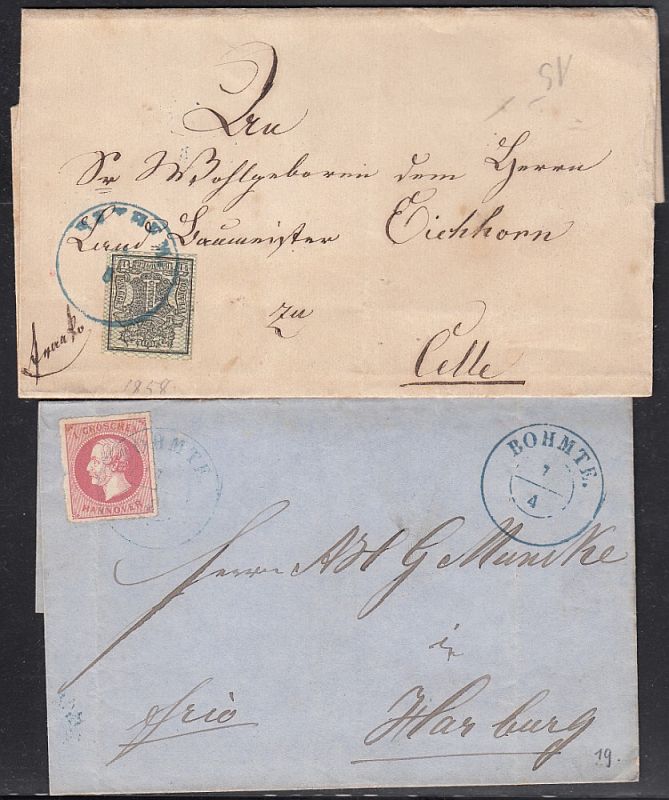 An
Sr Wohlgeboren dem Herrn
Land Baumeister Eichhorn
zu
Celle
franko
1858.
1 GROSCHEN
HANNOVER
BOHMTE
BOHMTE.
7
4
Herrn A H G Muncke
in
frco
Harburg
19.